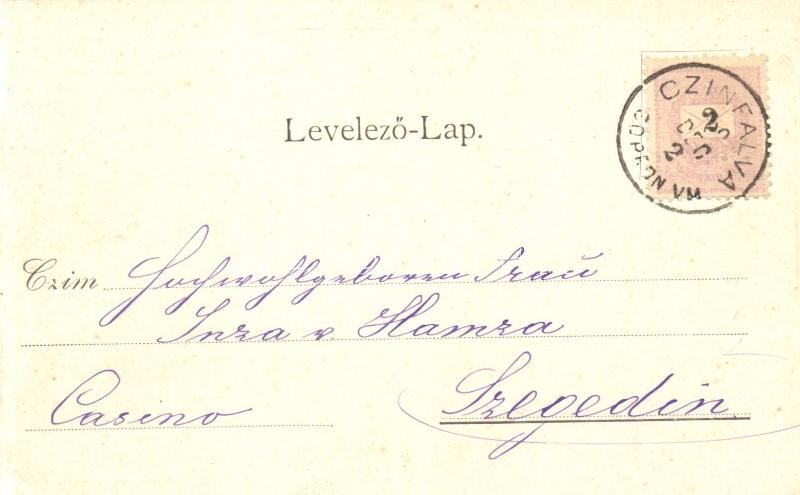 Levelező-Lap.
CZINFALVA
SOPRON VM
2
DEC
2
Czim Hochwohlgeboren Frau
Inza v. Hamza
Casino Szegedin.